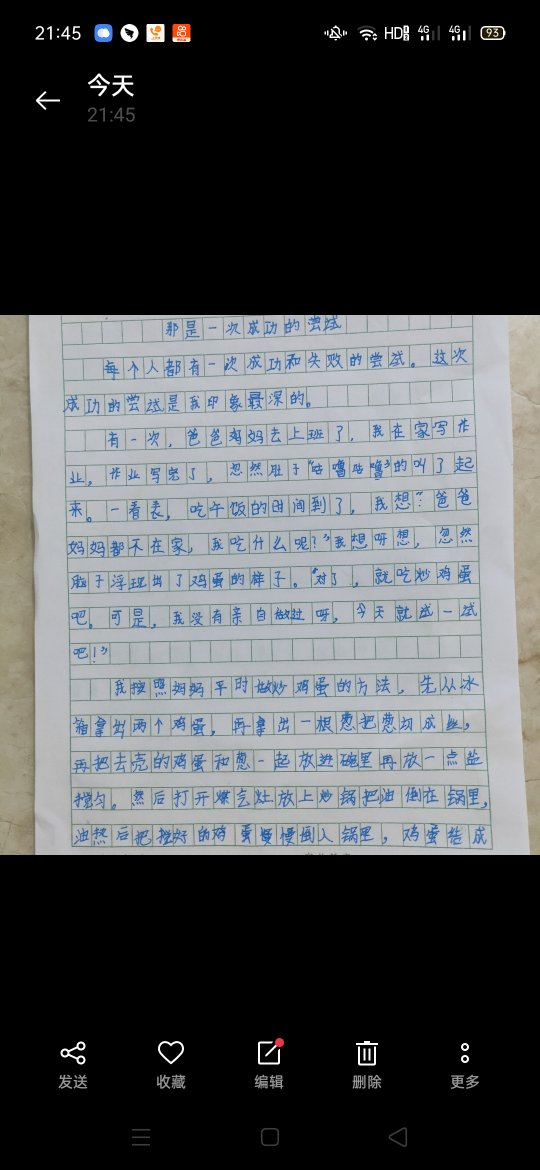 21:45
HD
4G
4G
93
今天
21:45
那是一次成功的尝试
每个人都有一次成功和失败的尝试。这次
成功的尝试是我印象最深的。
有一次,爸爸妈妈去上班了,我在家写作
业,作业写完了,忽然肚子“咕噜咕噜”的叫了起
来。一看表,吃午饭的时间到了,我想?爸爸
妈妈都不在家,我吃什么呢?”我想呀想,忽然
脑子浮现出了鸡蛋的样子。“对了,就吃炒鸡蛋
吧。可是,我没有亲自做过呀,今天就试一试
吧!”
我按照妈妈平时做炒鸡蛋的方法,先从冰
箱拿出两个鸡蛋,再拿出一根葱把葱切成丝,
再把去壳的鸡蛋和葱一起放进碗里再放一点盐
搅匀。然后打开煤气灶放上炒锅把油倒在锅里,
油热后把搅好的鸡蛋慢慢倒入锅里,鸡蛋结成
发送
收藏
编辑
删除
更多